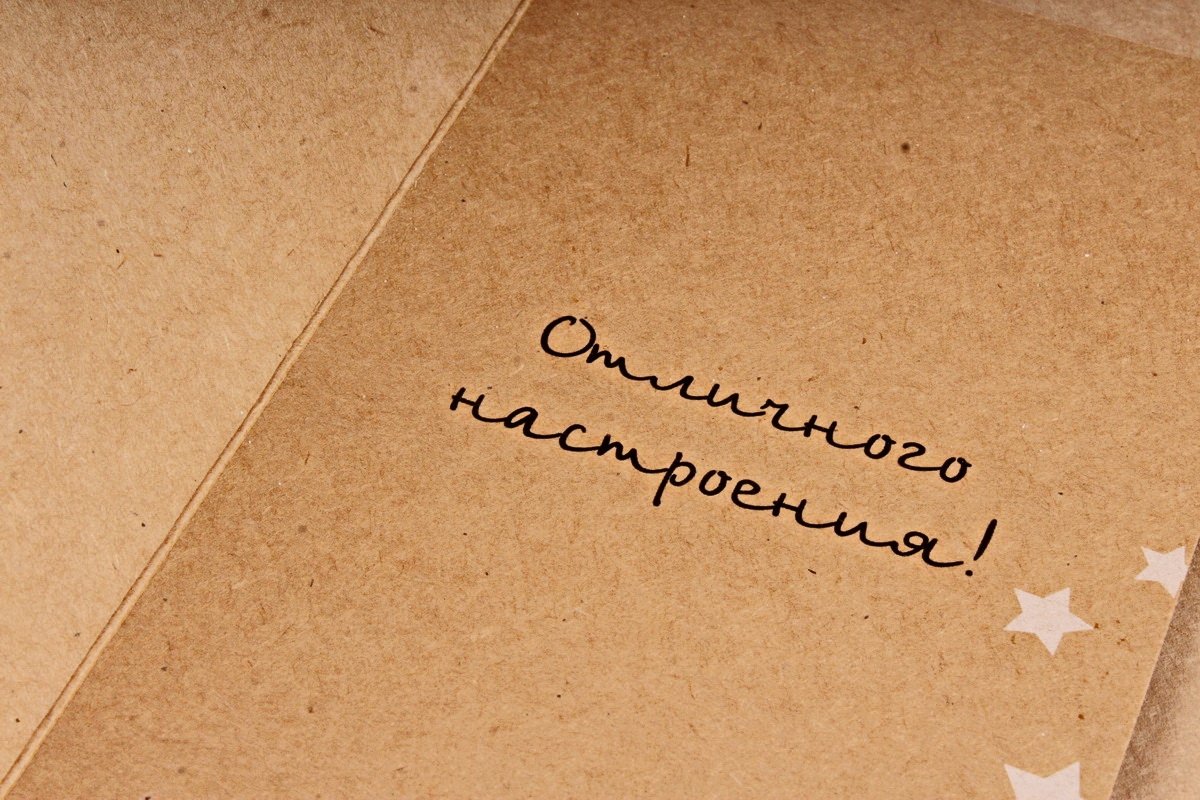 Отличного
настроения!